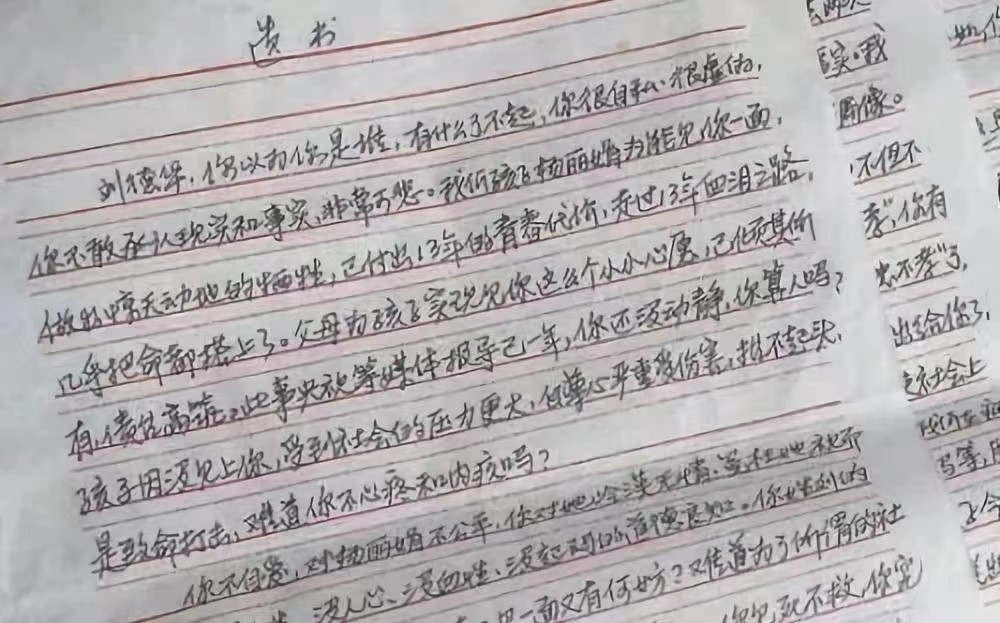 遗书
刘德华,你以为你是谁,有什么了不起,你很自私、很虚伪,
你不敢承认现实和事实,非常可悲。我们孩子杨丽娟为能见你一面,
做出惊天动地的牺牲,已付出13年的青春代价,走过13年血泪之路,
几乎把命都搭上了。父母为孩子实现见你这么个小小心愿,已化费其所
有,债台高筑,此事央视等媒体报导已一年,你还没动静,你算人吗?
孩子因没见上你,受到社会的压力更大,自尊心严重受伤害,抬不起头,
是致命打击,难道你不心疼和内疚吗?
你不自爱,对杨丽娟不公平,你对她冷漠无情,
没人心、没血性、没起码的道德良知。你
见一面又有何妨?难道为了所谓的社
你见死不救,你究
实。我
偶像。
不但不
孝",你有
出不孝了,
出给你了,
在社会上